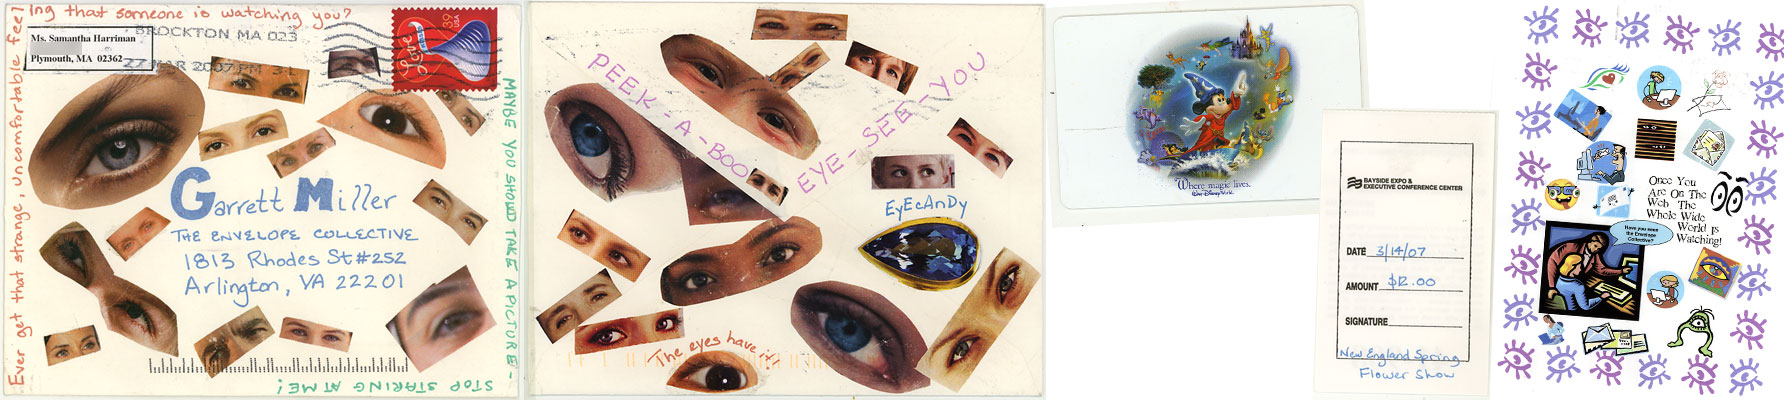 Ever get that strange, uncomfortable feeling that someone is watching you?
Ms. Samantha Harriman
Plymouth, MA 02362
BROCKTON MA 023
27 MAR 2007 PM 3 L
39
USA
Love
Garrett Miller
THE ENVELOPE COLLECTIVE
1813 Rhodes St #252
Arlington, VA 22201
MAYBE YOU SHOULD TAKE A PICTURE-
STOP STARING AT ME!
PEEK-A-BOO
EYE-SEE-YOU
EyEcAnDy
The eyes have it!
Where magic lives.
Walt Disney World
BAYSIDE EXPO &
EXECUTIVE CONFERENCE CENTER
DATE 3/14/07
AMOUNT $12.00
SIGNATURE
New England Spring
Flower Show
Once You
Are On The
Web The
Whole Wide
World Is
Watching!
Have you seen
the Envelope
Collective?